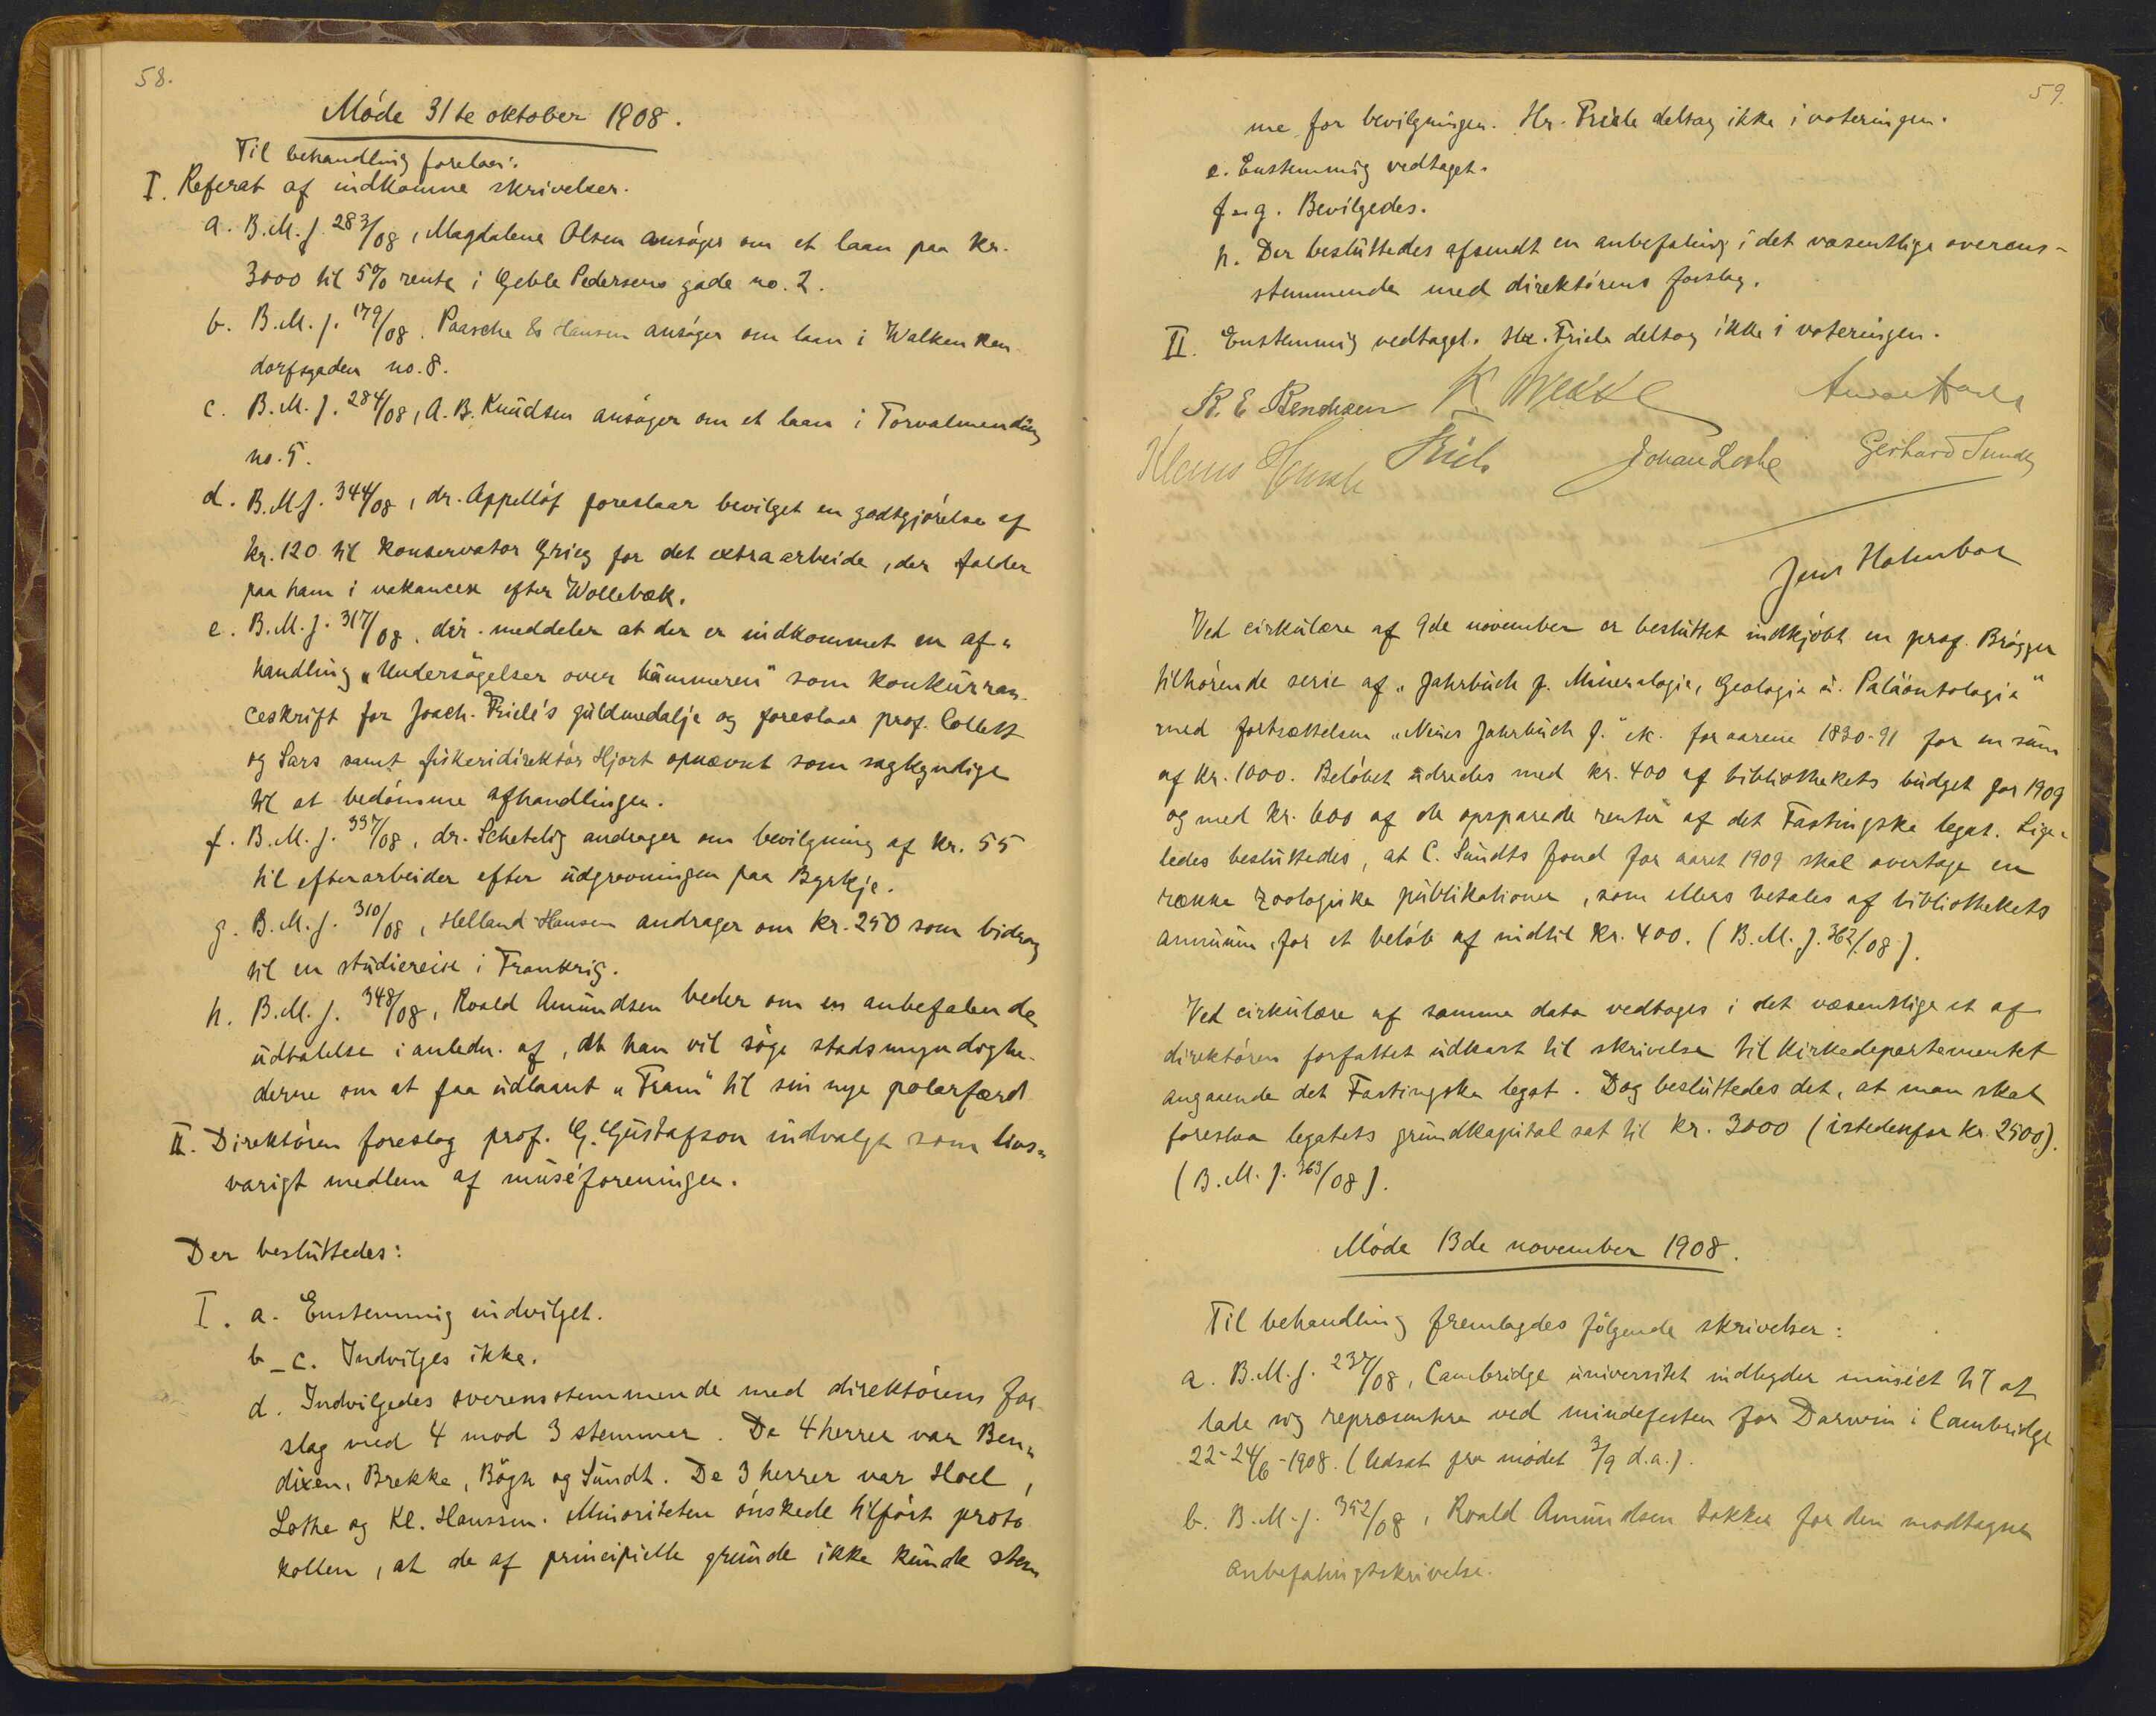 58.
Möde 31te oktober 1908.
Til behandling forelaa:
I. Referat af indkomne skrivelser.
a. B.M.J. 283/08, Magdalena Olsen ansöger om et laan paa kr.
3000 til 5% rente i Geble Pedersens gade no. 2.
b. B.M.J. 179/08. Paasche & Hansen ansöger om laan i Walken ken
dorfsgaden no. 8.
c. B.M.J. 284/08, A.B. Knudsen ansöger om et laan i Torvalmending
no. 5.
d. B.M.J. 344/08, dr. Appellöf foreslaar bevilget en godtgjörelse af
kr. 120 til konservator Grieg for det extraarbeide, der falder
paa ham i vakancen efter Wollebæk.
e. B.M.J. 317/08, dir. meddeler at der er indkommet en af-
handling "Undersögelser over hummeren" som konkurran-
ceskrift for Joach. Friele's guldmedalje og foreslaar prof. Collett
og Sars samt fiskeridirektör Hjort opnævnt som sagkyndige
til at bedömme afhandlingen.
f. B.M.J. 337/08, dr. Schetelig andrager om bevilgning af kr. 55
til efterarbeider efter udgravningen paa Byrkje.
g. B.M.J. 310/08, Helland-Hansen andrager om kr. 250 som bidrag
til en studiereise i Frankrig.
h. B.M.J. 348/08, Roald Amundsen beder om en anbefalende
udtalelse i anledn. af, at han vil söge stadsmyndighe-
derne om at faa udlaant "Fram" til sin nye polarfærd.
II. Direktören foreslog prof. G. Gustafson indvalgt som livs-
varigt medlem af muséforeningen.
Der besluttedes:
I. a. Enstemmig indvilget.
b-c. Indvilges ikke.
d. Indvilgedes overensstemmende med direktörens for-
slag med 4 mod 3 stemmer. De 4 herrer var Ben-
dixen, Brekke, Bögh og Sundt. De 3 herrer var Hoel,
Lothe og Kl. Hanssen. Minoriteten önskede tilfört proto
kollen, at de af principielle grunde ikke kunde stem
59.
me for bevilgningen. Hr. Friele deltog ikke i voteringen.
e. Enstemmig vedtaget.
f-g. Bevilgedes.
h. Der besluttedes afsendt en anbefaling i det væsentlige overens-
stemmende med direktörens forslag.
II. Enstemmig vedtaget. Hr. Friele deltog ikke i voteringen.
B. E. Bendixen K Brekke
Klaus Johan Lothe Gerhard Sundt
Jens Holmboe
Ved cirkulære af 9de november er besluttet indkjöbt en prof. Brögger
tilhörende serie af "Jahrbuch f. Mineralogie, Geologie u. Paläontologie"
med fortsættelsen "Neues Jahrbuch f." etc. for aarene 1830-91 for en sum
af kr. 1000. Belöbet udredes med kr. 400 af bibliothekets budget for 1909
og med kr. 600 af de opsparede renter af det Fastingske legat. Lige-
ledes besluttedes, at C. Sundts fond for aaret 1909 skal overtage en
række zoologiske publikationer, som ellers betales af bibliothekets
annuum, for et belöb af indtil kr. 400. (B.M.J. 362/08).
Ved cirkulære af samme dato vedtoges i det væsentlige et af
direktören forfattet udkast til skrivelse til Kirkedepartementet
angaaende det Fastingske legat. Dog besluttedes det, at man skal
foreslaa legatets grundkapital sat til kr. 3000 (istedenfor kr. 2500).
(B.M.J. 363/08).
Möde 13de november 1908.
Til behandling fremlagdes fölgende skrivelser:
a. B.M.J. 237/08, Cambridge universitet indbyder muséet til at
lade sig repræsentere ved mindefesten for Darwin i Cambridge
22-24/6-1908. (Udsat fra mödet 3/9 d.a.).
b. B.M.J. 352/08, Roald Amundsen takker for den modtagne
anbefalingsskrivelse.